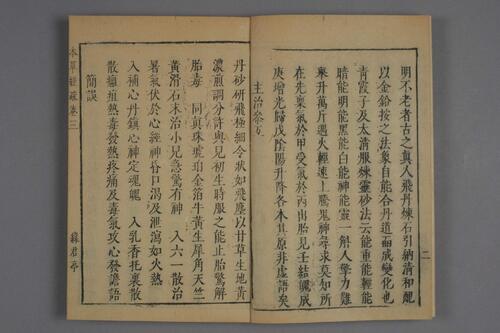 明不老者古之眞人飛丹煉石引納清和配
以金鉛按之法象自能合丹道而成變化也
青霞子及太清服煉靈砂法云能重能輕能
暗能明能黑能白能神能靈一斛人擎力難
舉升萬斤遇火輕速上騰鬼神尋求莫知所
在先稟氣於甲受氣於丙出胎見壬結魄成
庚增光歸戊陰陽升降各本其原非虛語矣
主治參互
丹砂硏飛極細令狀如飛塵以甘草生地黃
濃煎調分許與兒初生時服之能止胎驚解
胎毒 同真珠琥珀金箔牛黃生犀角天竺
黃滑石末治小兒急驚有神 入六一散治
暑氣伏於心經神昏口渴及泄瀉如火熱
入補心丹鎮心神定魂魄 入乳香托裏散
散癰疽熱毒發熱疼痛及毒氣攻心發譫語
簡誤
本草經疏卷三
綠君亭
二